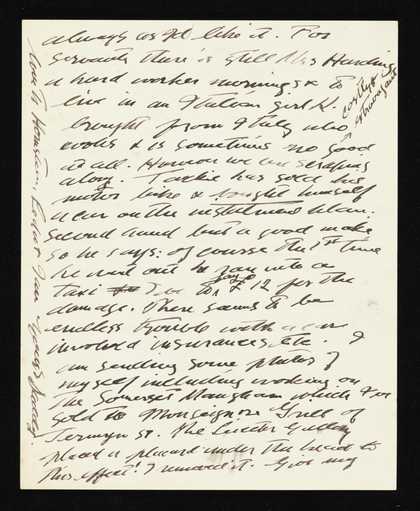 always as I'd like it. For
servants there's still Mrs Harding
a hard worker mornings & to
live in an Italian girl K.
brought from Italy who
cooks & is sometimes no good
at all. However we are scraping
along. has sold his
motor bike & bought himself
a car on the instalment plan.
Second hand but a good make
so he says: of course the 1st time
he went out he ran into a
taxi I to pay £12 for the
damage. There seems to be
endless trouble with a car
involved insurances etc. I
am sending some photos of
myself including working on
the Somerset Maugham which I've
sold to Monseigneur Grill of
Jermyn St. The Leicester Gallery
placed a placard under the head to
this effect! I removed it. Give my
love to Hornstein, Edgar &